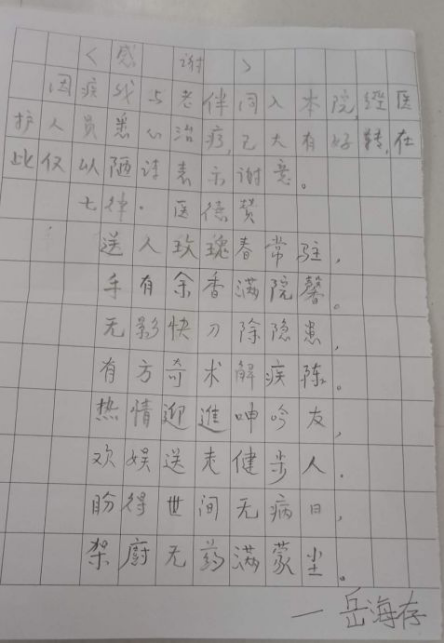 《感谢》
因疾我与老伴同入本院,经医
护人员悉心治疗,已大有好转,在
此仅以陋诗表示谢意。
七律·医德赞
送人玫瑰春常驻,
手有余香满院馨。
无影快刀除隐患,
有方奇术解疾陈。
热情迎進呻吟友,
欢娱送走健步人.
盼得世间无病日,
架廚无药满蒙尘。
— 岳海存